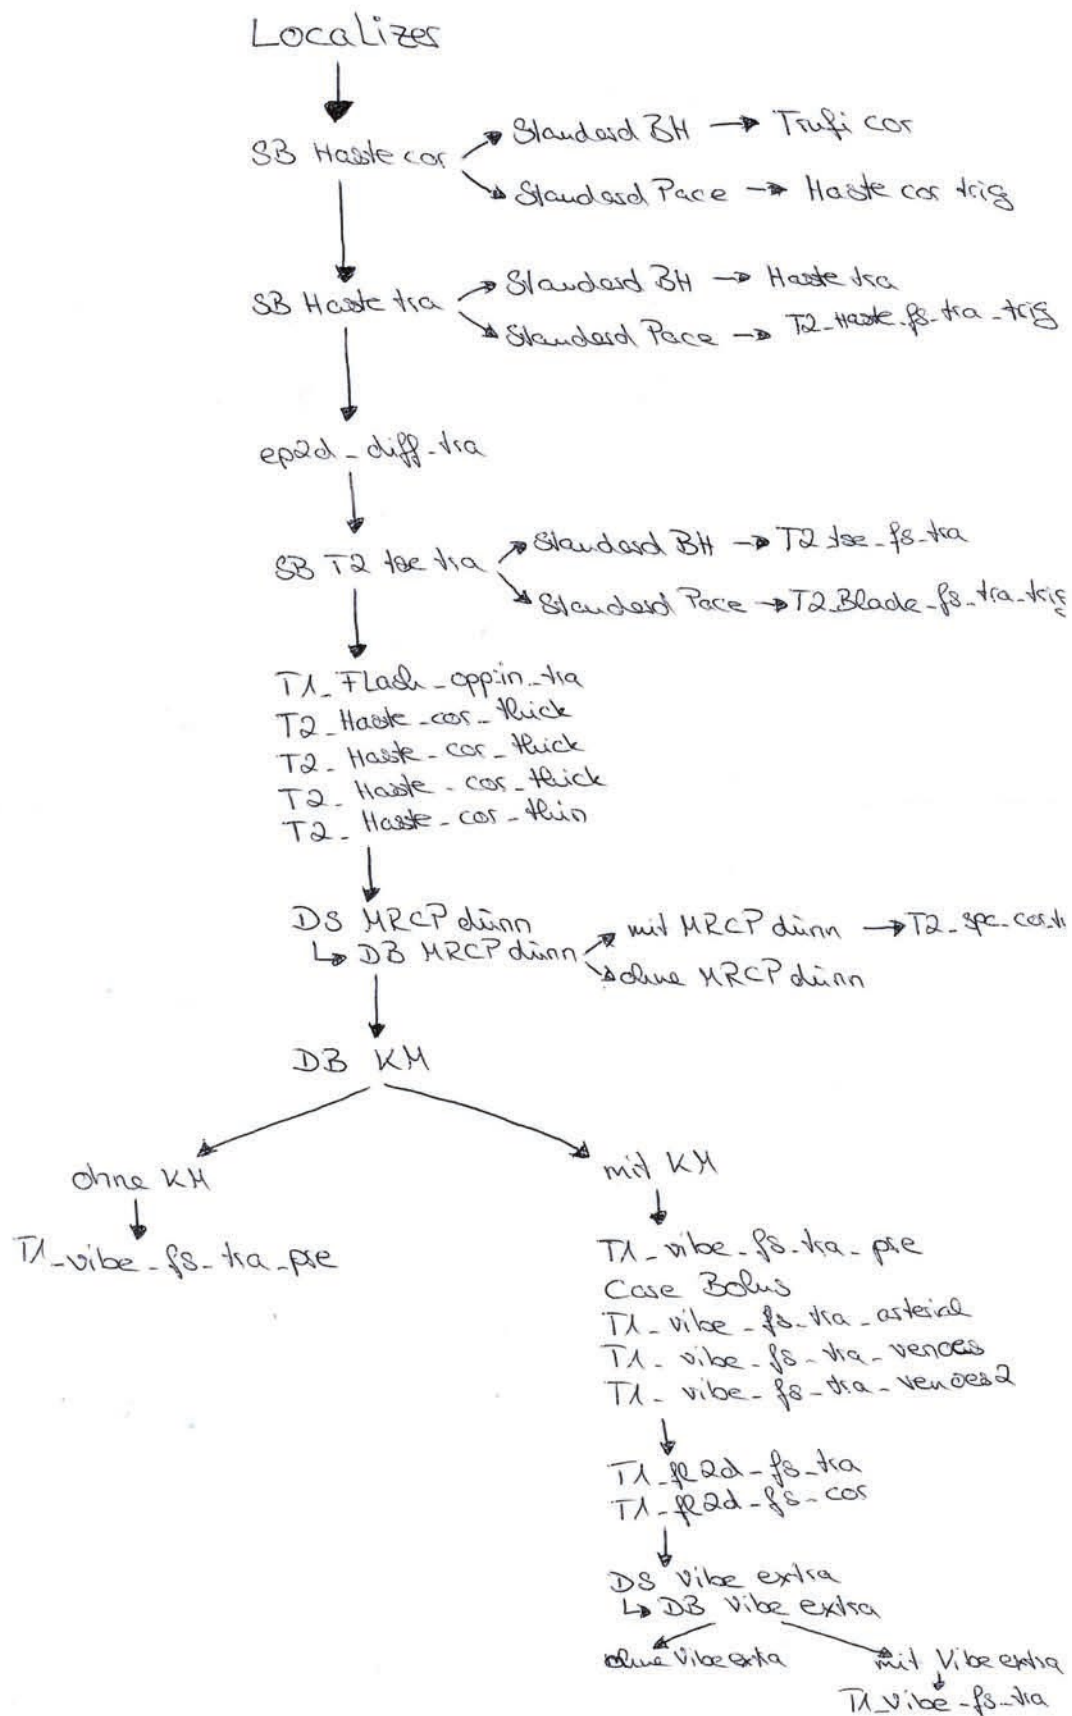 Localizer
SB Haste cor
Standard BH → Trufi cor
Standard Pace → Haste cor trig
SB Haste tra
Standard BH → Haste tra
Standard Pace → T2_Haste_fs_tra_trig
ep2d_diff_tra
SB T2 tse tra
Standard BH → T2_tse_fs_tra
Standard Pace → T2_Blade_fs_tra_trig
T1_Flash_opp-in_tra
T2_Haste_cor_thick
T2_Haste_cor_thick
T2_Haste_cor_thick
T2_Haste_cor_thin
DS MRCP dünn
↳ DB MRCP dünn
mit MRCP dünn → T2_spc_cor
ohne MRCP dünn
DB KM
ohne KM
mit KM
T1_vibe_fs_tra_pre
T1_vibe_fs_tra_pre
Care Bolus
T1_vibe_fs_tra_arterial
T1_vibe_fs_tra_venoes
T1_vibe_fs_tra_venoes2
T1_fl2d_fs_tra
T1_fl2d_fs_cor
DS Vibe extra
↳ DB Vibe extra
ohne Vibe extra
mit Vibe extra
T1_Vibe_fs_tra